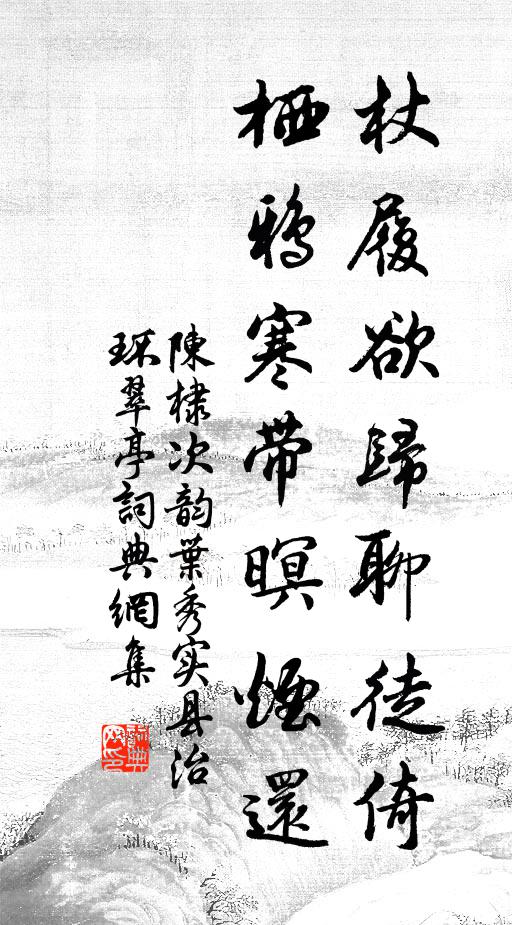 杖履欲歸聊徒倚
栖鴉寒帶暝煙還
陳棣次韵葉秀实县治
环翠亭詞典網集